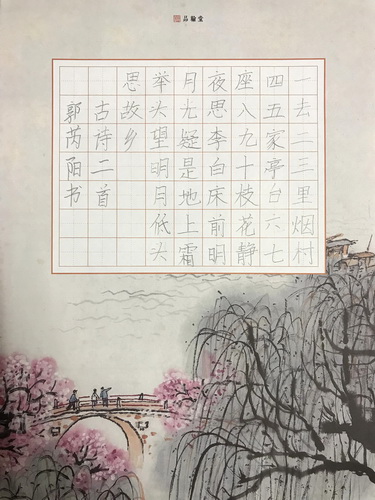 品翰堂
一去二三里烟村
四五家亭台六七
座八九十枝花静
夜思李白床前明
月光疑是地上霜
举头望明月低头
思故乡
古诗二首
郭芮阳书